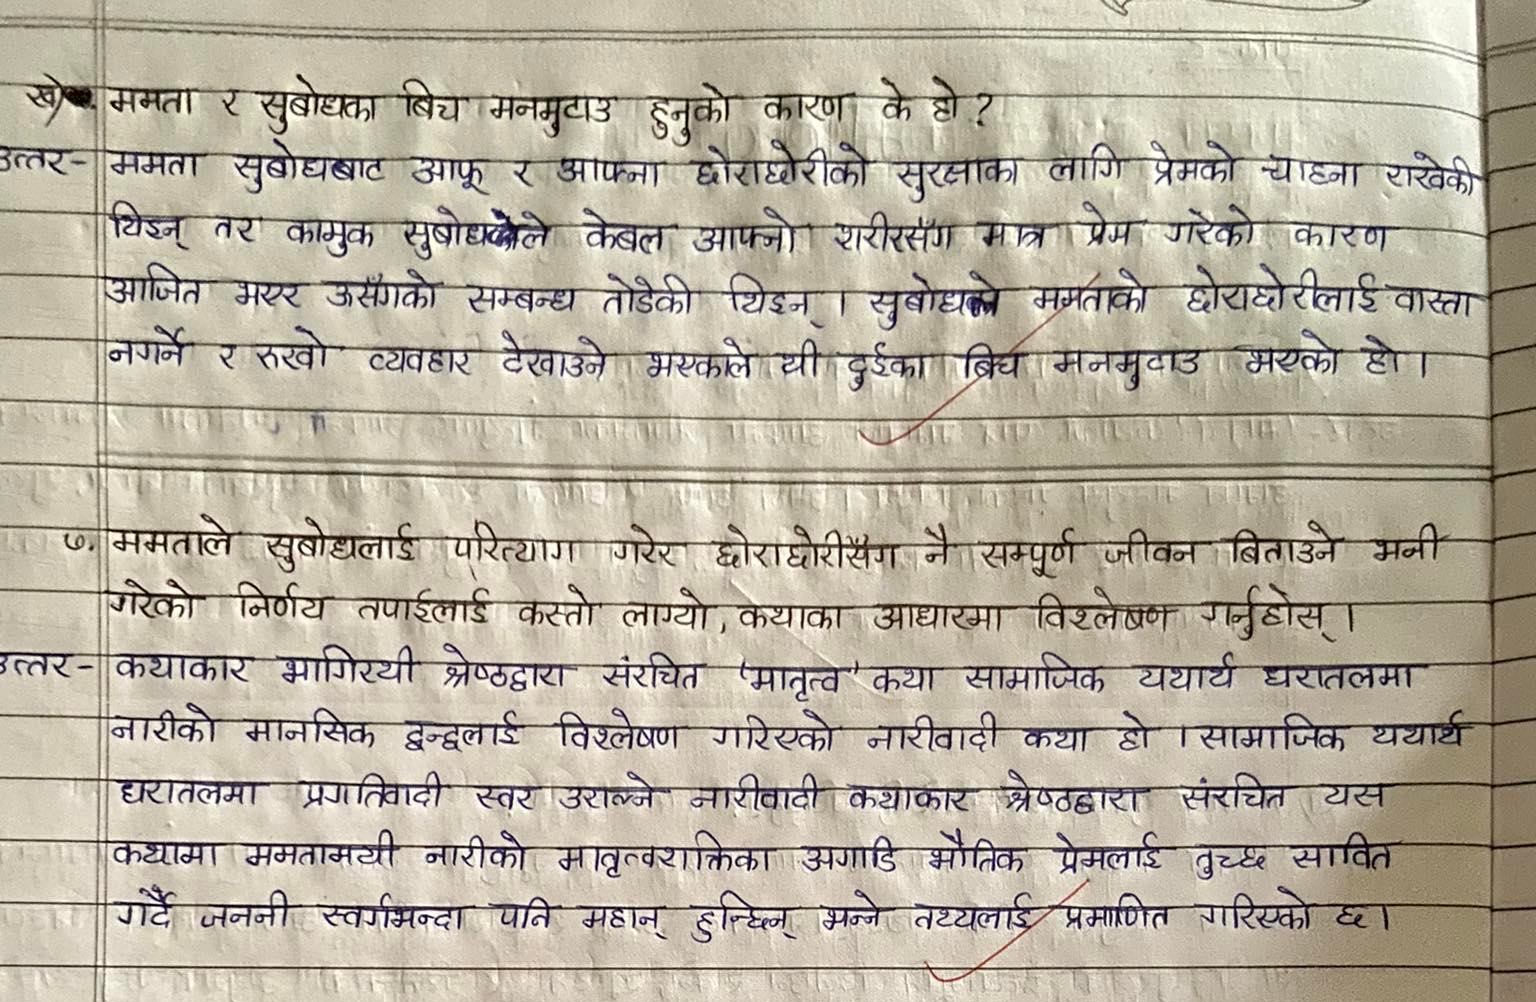 ख) ममता र सुबोधका बिच मनमुटाउ हुनुको कारण के हो ?
उत्तर- ममता सुबोधबाट आफू र आफ्ना छोराछोरीको सुरक्षाका लागि प्रेमको चाहना राखेकी
थिइन् तर कामुक सुबोधले केबल आफ्नो शरीरसँग मात्र प्रेम गरेको कारण
आजित भएर ऊसँगको सम्बन्ध तोडेकी थिइन् । सुबोधले ममताको छोराछोरीलाई वास्ता
नगर्ने र रुखो व्यवहार देखाउने भएकाले यी दुईका बिच मनमुटाउ भएको हो ।
७. ममताले सुबोधलाई परित्याग गरेर छोराछोरीसँग नै सम्पूर्ण जीवन बिताउने भनी
गरेको निर्णय तपाईलाई कस्तो लाग्यो, कथाका आधारमा विश्लेषण गर्नुहोस् ।
उत्तर- कथाकार भागिरथी श्रेष्ठद्वारा संरचित 'मातृत्व' कथा सामाजिक यथार्थ धरातलमा
नारीको मानसिक द्वन्द्वलाई विश्लेषण गरिएको नारीवादी कथा हो । सामाजिक यथार्थ
धरातलमा प्रगतिवादी स्वर उराल्ने नारीवादी कथाकार श्रेष्ठद्वारा संरचित यस
कथामा ममतामयी नारीको मातृत्वशक्तिका अगाडि भौतिक प्रेमलाई तुच्छ सावित
गर्दै जननी स्वर्गभन्दा पनि महान् हुन्छिन् भन्ने तथ्यलाई प्रमाणित गरिएको छ ।